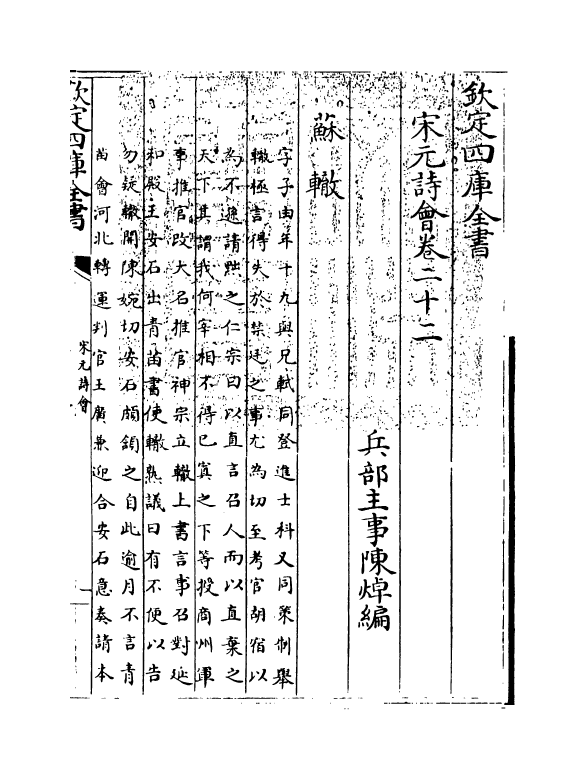 欽定四庫全書
宋元詩會卷二十二
兵部主事陳焯編
蘇轍
字子由年十九與兄軾同登進士科又同策制舉
轍極言得失於禁廷之事尤為切至考官胡宿以
為不遜請黜之仁宗曰以直言召人而以直棄之
天下其謂我何宰相不得已寘之下等授商州軍
事推官改大名推官神宗立轍上書言事召對延
和殿王安石出青苗書使轍熟議曰有不便以告
勿疑轍開陳婉切安石頗頷之自此逾月不言青
苗會河北轉運判官王廣兼迎合安石意奏請本
欽定四庫全書
宋元詩會
一